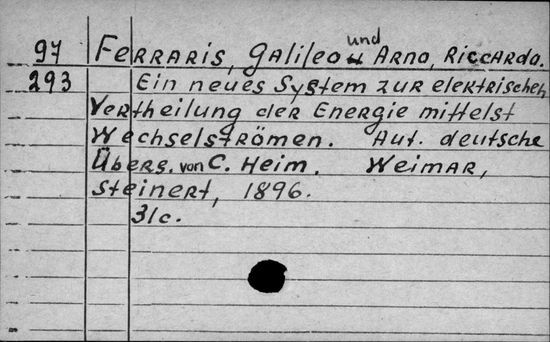 97 Ferraris, Galileo und Arno, Riccardo.
293 Ein neues System zur elektrischen
Vertheilung der Energie mittelst
Wechselströmen. Aut. deutsche
Übers. von C. Heim. Weimar,
Steinert, 1896.
31c.